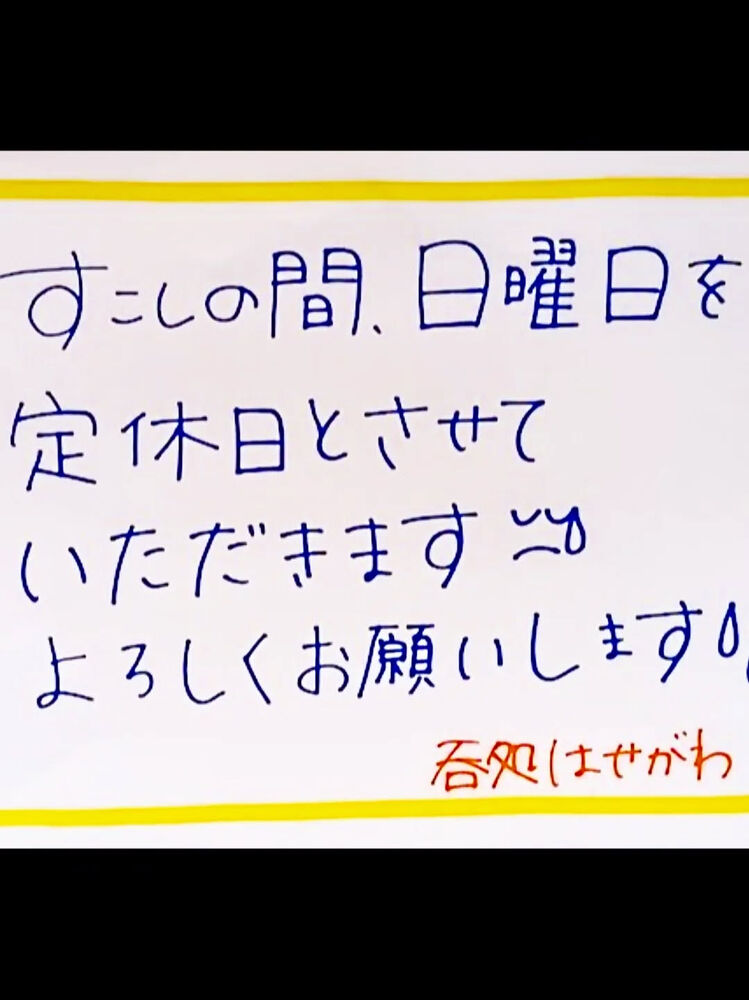 すこしの間、日曜日を
定休日とさせて
いただきます
よろしくお願いします
呑処はせがわ